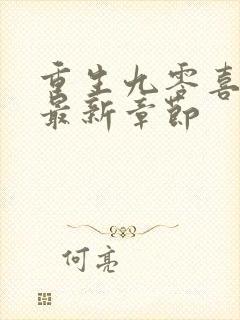 重生九零喜
最新章节
何亮